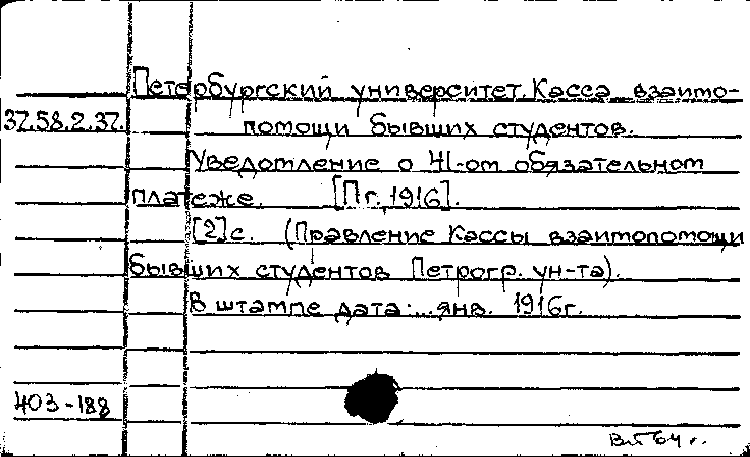 Петербургский университет. Касса взаимо-
37.58.2.37.
помощи бывших студентов.
Уведомление о 41-ом обязательном
платеже. [Пг., 1916].
[2] с. (Правление Кассы взаимопомощи
бывших студентов Петрогр. ун-та).
В штампе дата: .. янв. 1916г.
403-188